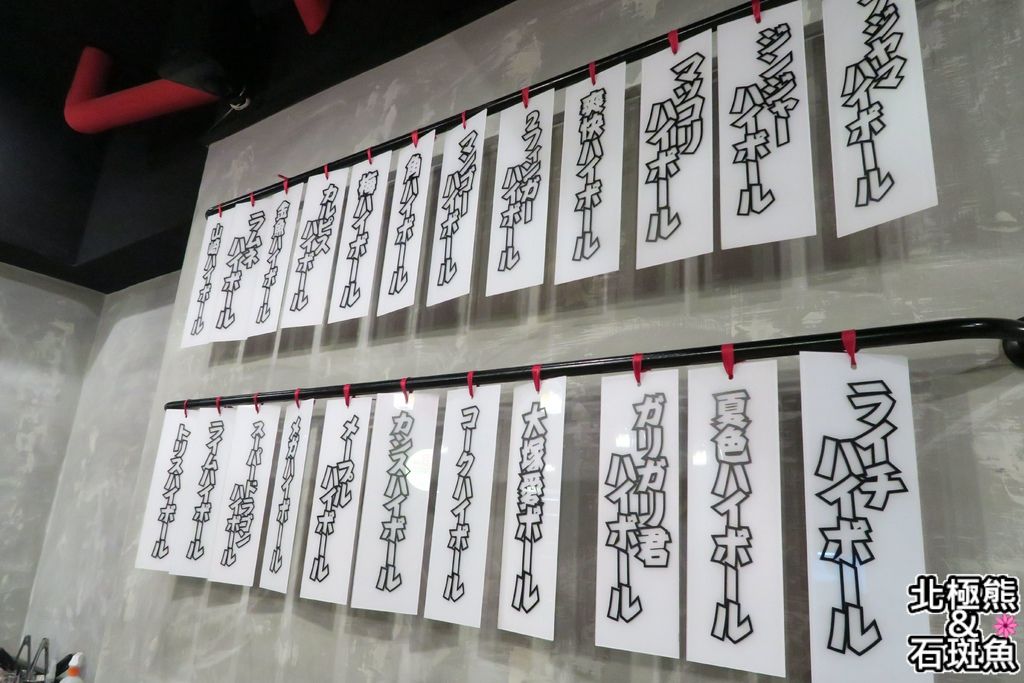 山崎ハイボール
ラムネ
ハイボール
カルピス
ハイボール
梅ハイボール
角ハイボール
マンゴー
ハイボール
ハイボール
爽快ハイボール
マッコリ
ハイボール
ジンジャー
ハイボール
ハイボール
トリスハイボール
ライムハイボール
スーパードラゴン
ハイボール
メガハイボール
メープル
ハイボール
カシスハイボール
コークハイボール
大塚愛ボール
ガリガリ君
ハイボール
夏色ハイボール
ライチ
ハイボール
北極熊
&
石斑魚